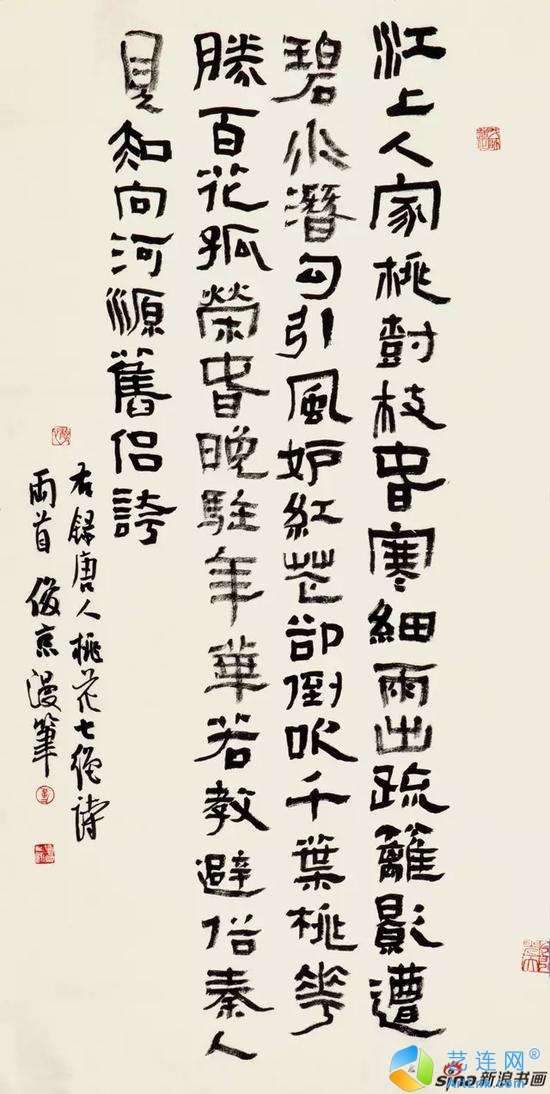 江上人家桃樹枝春寒細雨出疏籬影遭
碧水潛勾引風妒紅花卻倒吹千葉桃花
勝百花孤榮春晚駐年華若教避俗秦人
見知向河源舊侶誇
右録唐人桃花七绝詩
兩首 俊京漫筆
艺连网
sina新浪书画